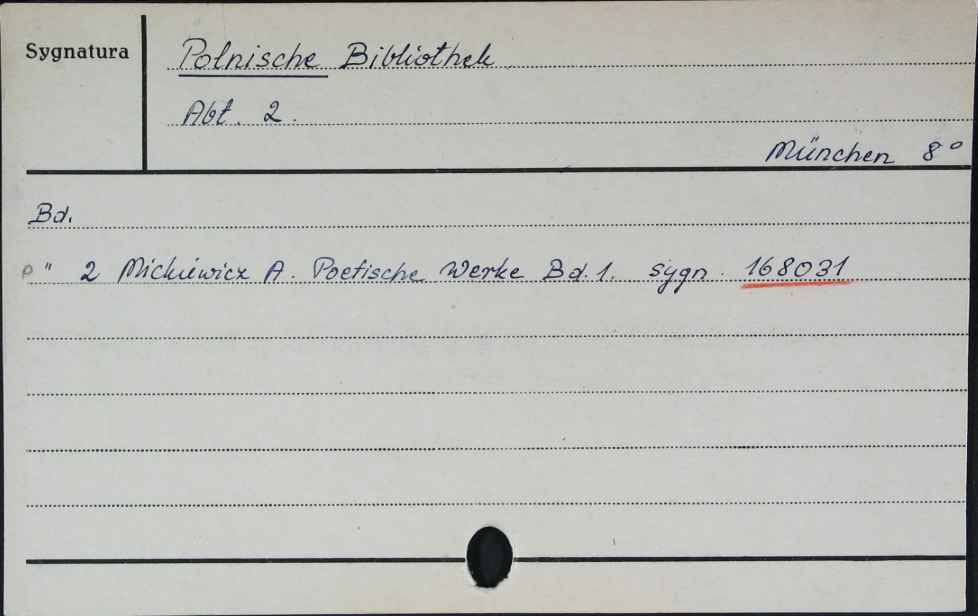 Sygnatura
Polnische Bibliothek
Abt. 2.
München 8°
Bd.
" 2 Mickiewicz A. Poetische Werke Bd. 1. sygn. 168031